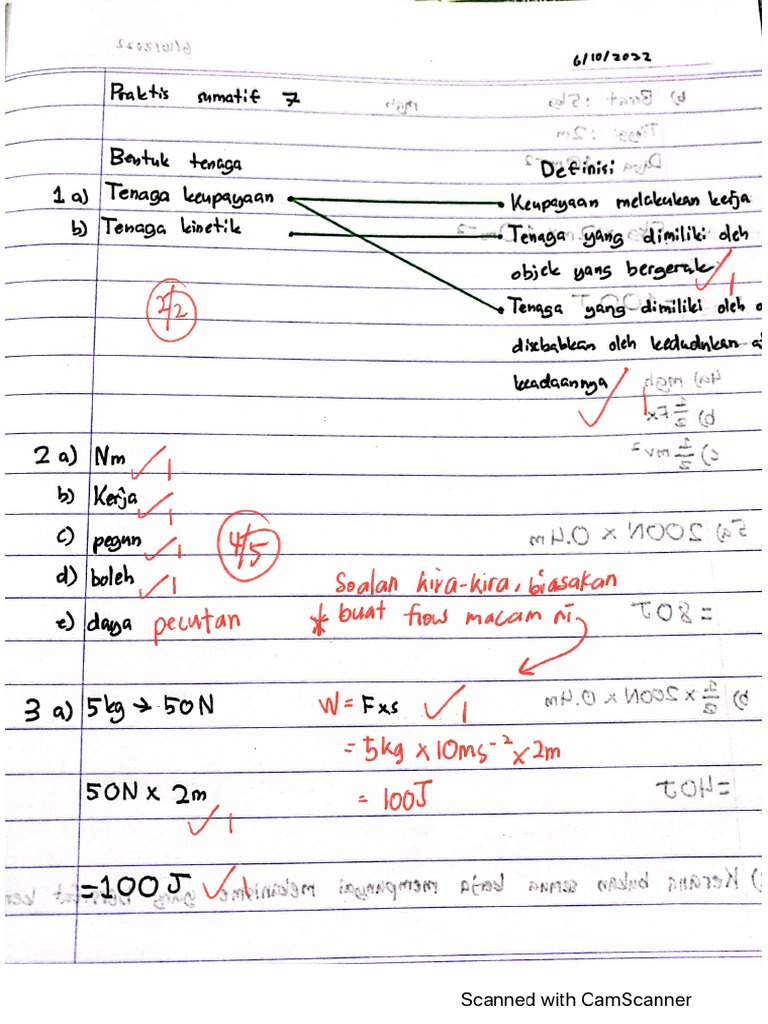 6/10/2022
Praktis sumatif 7
Bentuk tenaga
Definisi
1 a) Tenaga keupayaan
Keupayaan melakukan kerja
b) Tenaga kinetik
Tenaga yang dimiliki oleh
objek yang bergerak
1
2/2
Tenaga yang dimiliki oleh
disebabkan oleh kedudukan
keadaannya
1
2 a) Nm 1
b) Kerja 1
c) pegun 1
4/5
d) boleh 1
Soalan kira-kira, biasakan
e) daya pecutan
* buat flow macam ni
3 a) 5kg → 50N
W = Fxs 1
= 5kg x 10ms⁻² x 2m
50N x 2m
= 100J
1
= 100J 1
Scanned with CamScanner